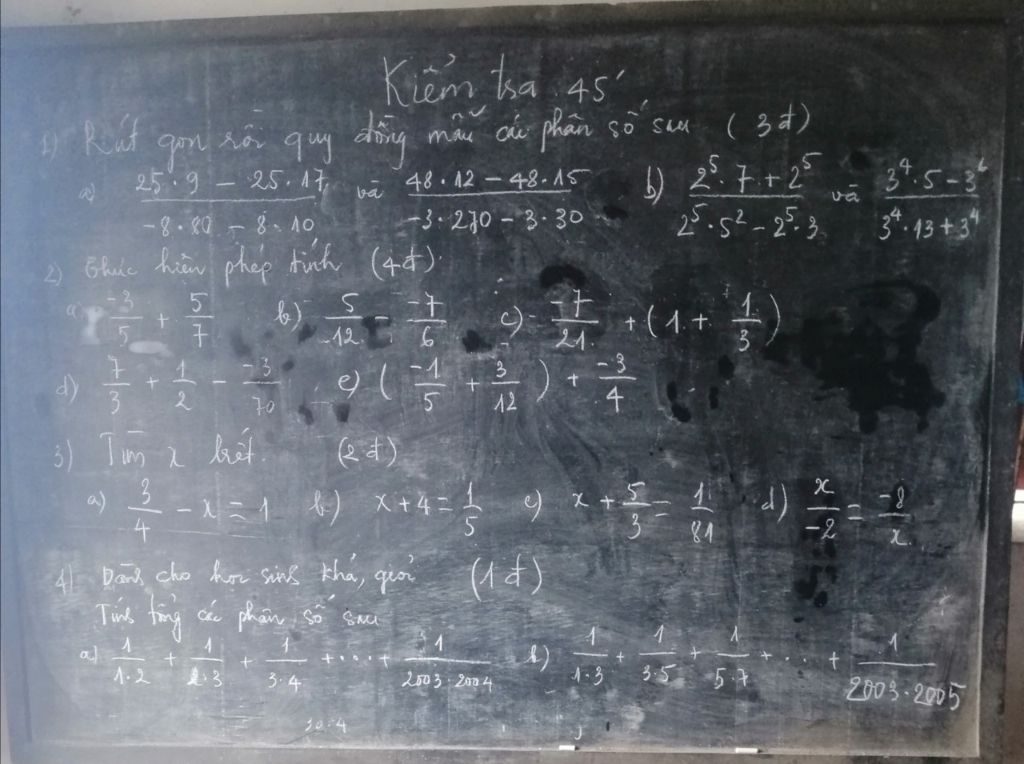 Kiểm tra 45'
1) Rút gọn rồi quy đồng mẫu các phân số sau (3đ)
a) (25.9 - 25.17)/(-8.80 - 8.10) và (48.12 - 48.15)/(-3.270 - 3.30) b) (2^5.7 + 2^5)/(2^5.5^2 - 2^5.3) và (3^4.5 - 3^6)/(3^4.13 + 3^4)
2) Thực hiện phép tính (4đ)
a) -3/5 + 5/7 b) 5/12 - -7/6 c) -7/21 + (1 + 1/3)
d) 7/3 + 1/2 - -3/70 e) (-1/5 + 3/12) + -3/4
3) Tìm x biết. (2đ)
a) 3/4 - x = 1 b) x + 4 = 1/5 c) x + 5/3 = 1/81 d) x/-2 = -8/x
4) Dành cho học sinh khá, giỏi (1đ)
Tính tổng các phân số sau
a) 1/1.2 + 1/2.3 + 1/3.4 + .... + 1/2003.2004 b) 1/1.3 + 1/3.5 + 1/5.7 + ... + 1/2003.2005